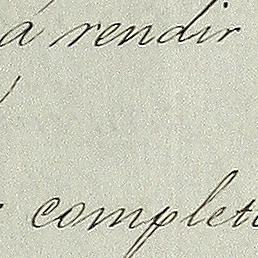 á rendir
complet